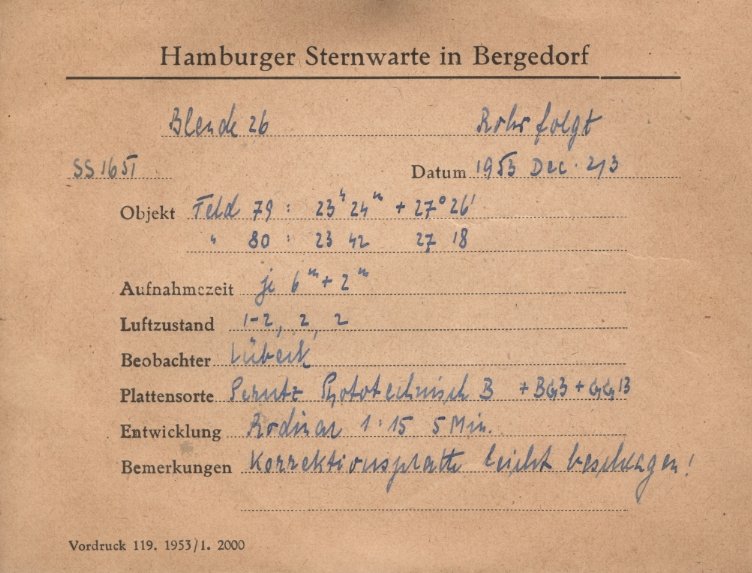 Hamburger Sternwarte in Bergedorf
Blende 26 Rohr folgt
SS 1651 Datum 1953 Dec. 2/3
Objekt Feld 79 : 23ʰ 24ᵐ + 27° 26'
" 80 : 23 42 27 18
Aufnahmezeit je 6ᵐ + 2ᵐ
Luftzustand 1-2, 2, 2
Beobachter Lübeck
Plattensorte Perutz Phototechnisch B + BG3 + GG13
Entwicklung Rodinal 1:15 5 Min.
Bemerkungen Korrektionsplatte leicht beschlagen!
Vordruck 119. 1953/1. 2000